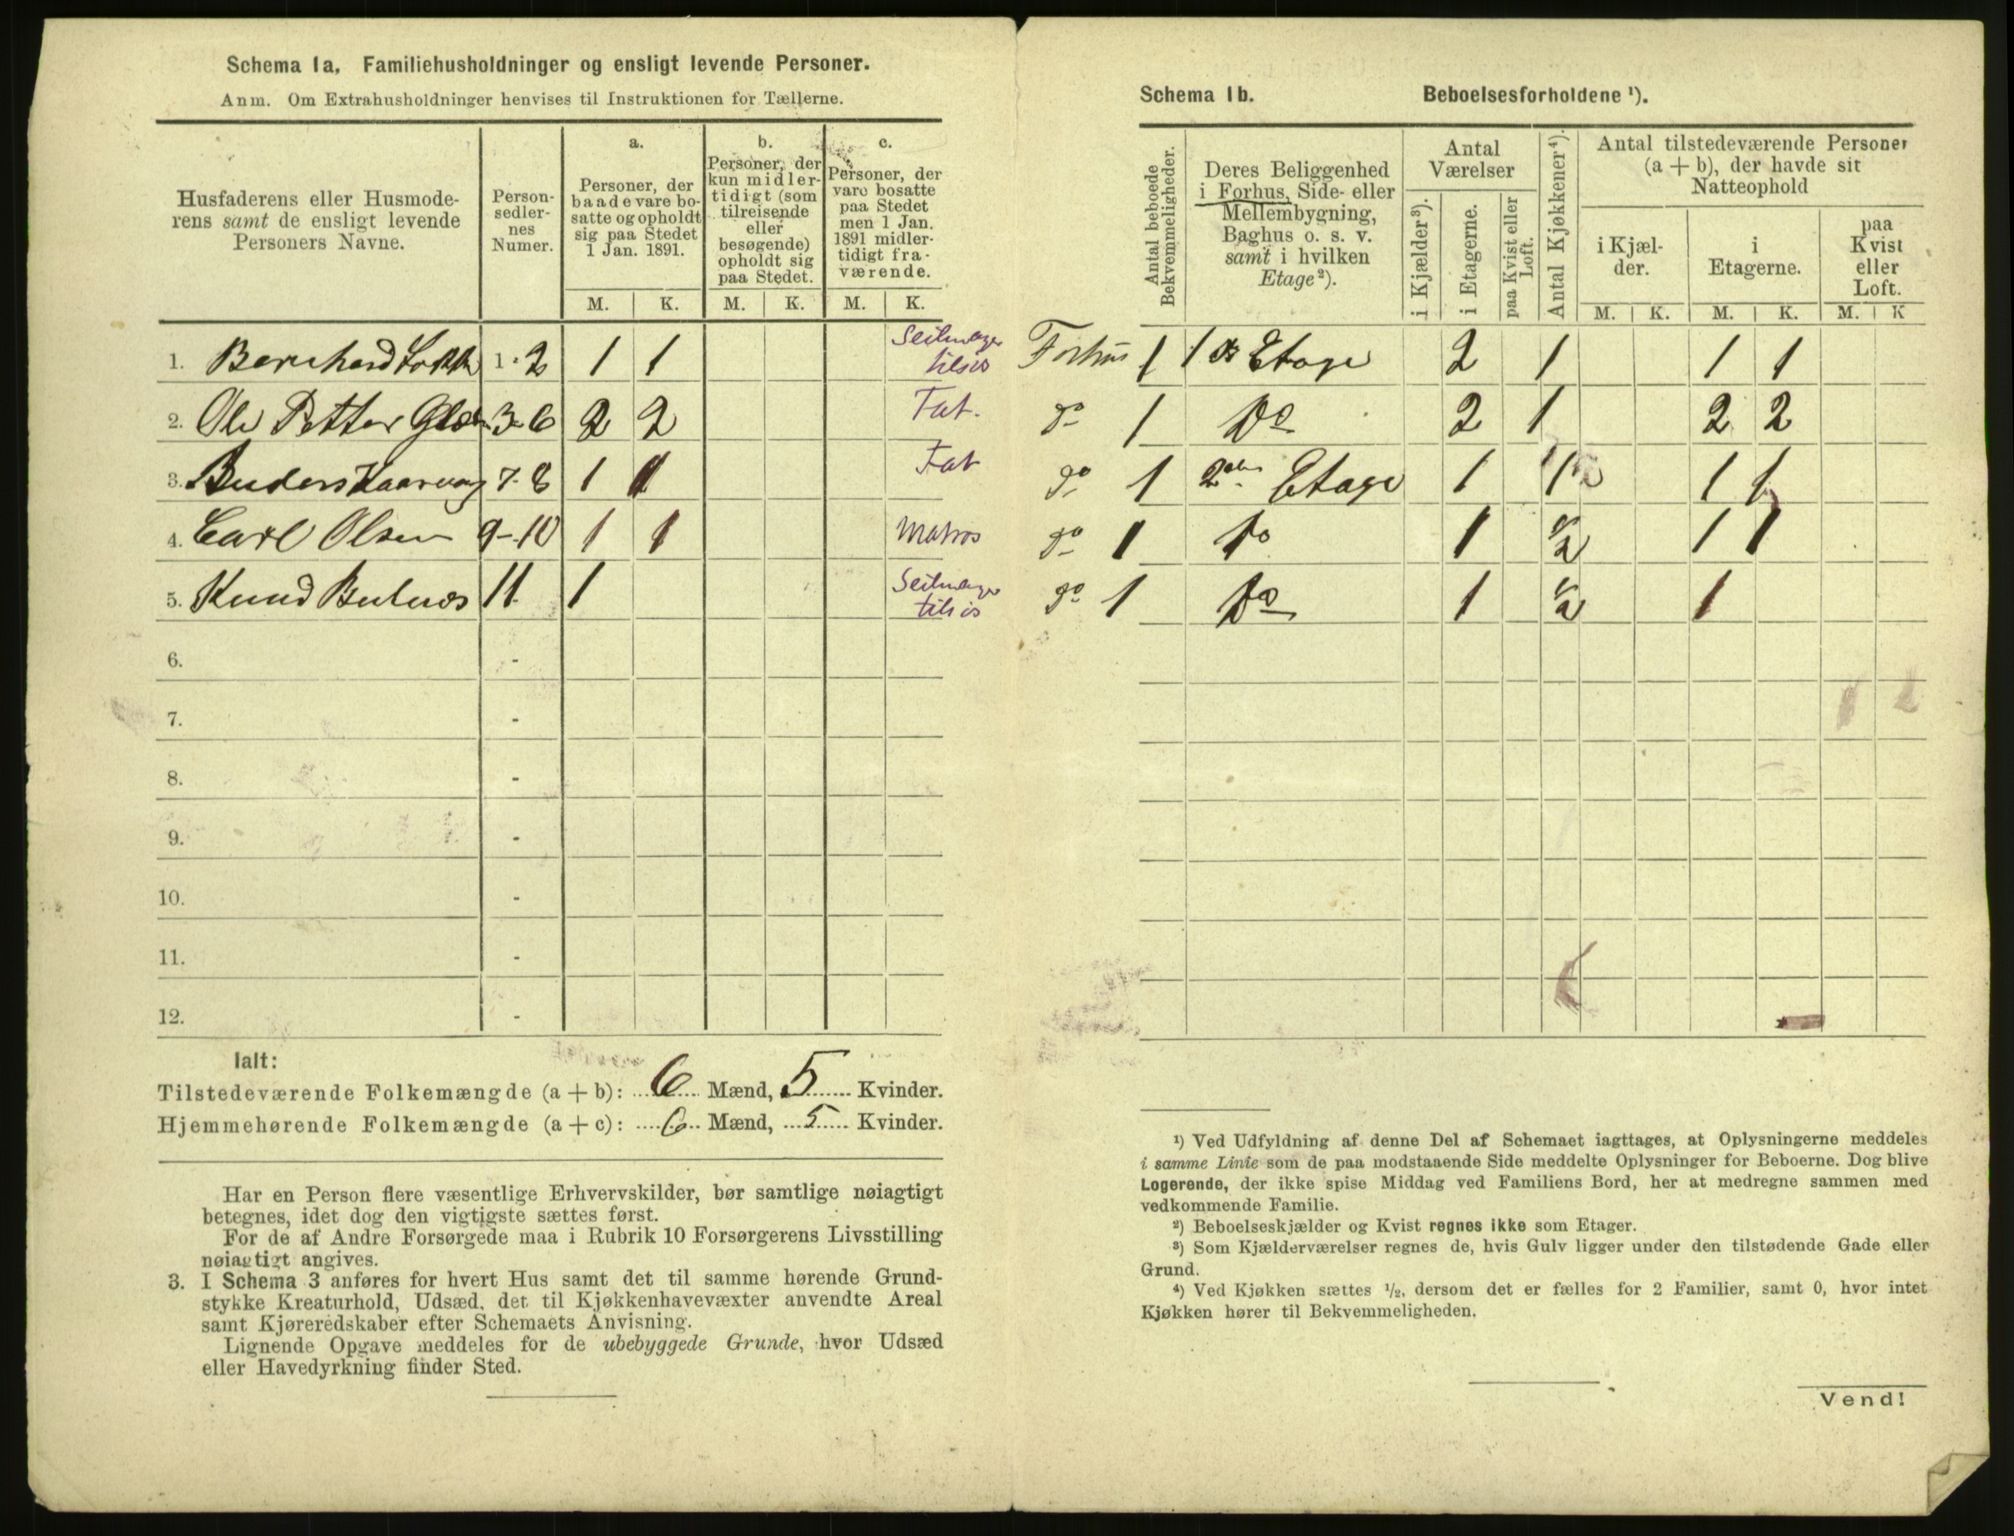 Schema 1a. Familiehusholdninger og ensligt levende Personer.
Anm. Om Extrahusholdninger henvises til Instruktionen for Tællerne.
Husfaderens eller Husmode-
rens samt de ensligt levende
Personers Navne.
Person-
sedler-
nes
Numer.
a.
Personer, der
baade vare bo-
satte og opholdt
sig paa Stedet
1 Jan. 1891.
M. K.
b.
Personer, der
kun midler-
tidigt (som
tilreisende
eller
besøgende)
opholdt sig
paa Stedet.
M. K.
c.
Personer, der
vare bosatte
paa Stedet
men 1 Jan.
1891 midler-
tidigt fra-
værende.
M. K.
1. Bernhard 1-2 1 1 Seilmager tilsiø
2. Ole Petter 3-6 2 2 Fat.
3. 7-8 1 1 Fat
4. Carl Olsen 9-10 1 1 Matros
5. Knud 11. 1 Seilmager tilsiø
6. -
7. -
8. -
9. -
10. -
11. -
12. -
Ialt:
Tilstedeværende Folkemængde (a + b): 6 Mænd, 5 Kvinder.
Hjemmehørende Folkemængde (a + c): 6 Mænd, 5 Kvinder.
Har en Person flere væsentlige Erhvervskilder, bør samtlige nøiagtigt
betegnes, idet dog den vigtigste sættes først.
For de af Andre Forsørgede maa i Rubrik 10 Forsørgerens Livsstilling
nøiagtigt angives.
3. I Schema 3 anføres for hvert Hus samt det til samme hørende Grund-
stykke Kreaturhold, Udsæd, det til Kjøkkenhavevæxter anvendte Areal
samt Kjøreredskaber efter Schemaets Anvisning.
Lignende Opgave meddeles for de ubebyggede Grunde, hvor Udsæd
eller Havedyrkning finder Sted.
Schema 1b. Beboelsesforholdene ¹).
Antal beboede
Bekvemmeligheder.
Deres Beliggenhed
i Forhus, Side- eller
Mellembygning,
Baghus o. s. v.
samt i hvilken
Etage²).
Antal
Værelser
i Kjælder³).
i Etagerne.
paa Kvist eller
Loft.
Antal Kjøkkener⁴).
Antal tilstedeværende Personer
(a + b), der havde sit
Natteophold
i Kjæl-
der.
i
Etagerne.
paa
Kvist
eller
Loft.
M. K. M. K. M. K
Forhus 1 1ste Etage 2 1 1 1
do 1 do 2 1 2 2
do 1 2den Etage 1 1/2 1 1
do 1 do 1 1/2 1 1
do 1 do 1 1/2 1
¹) Ved Udfyldning af denne Del af Schemaet iagttages, at Oplysningerne meddeles
i samme Linie som de paa modstaaende Side meddelte Oplysninger for Beboerne. Dog blive
Logerende, der ikke spise Middag ved Familiens Bord, her at medregne sammen med
vedkommende Familie.
²) Beboelseskjælder og Kvist regnes ikke som Etager.
³) Som Kjælderværelser regnes de, hvis Gulv ligger under den tilstødende Gade eller
Grund.
⁴) Ved Kjøkken sættes ½, dersom det er fælles for 2 Familier, samt 0, hvor intet
Kjøkken hører til Bekvemmeligheden.
Vend!